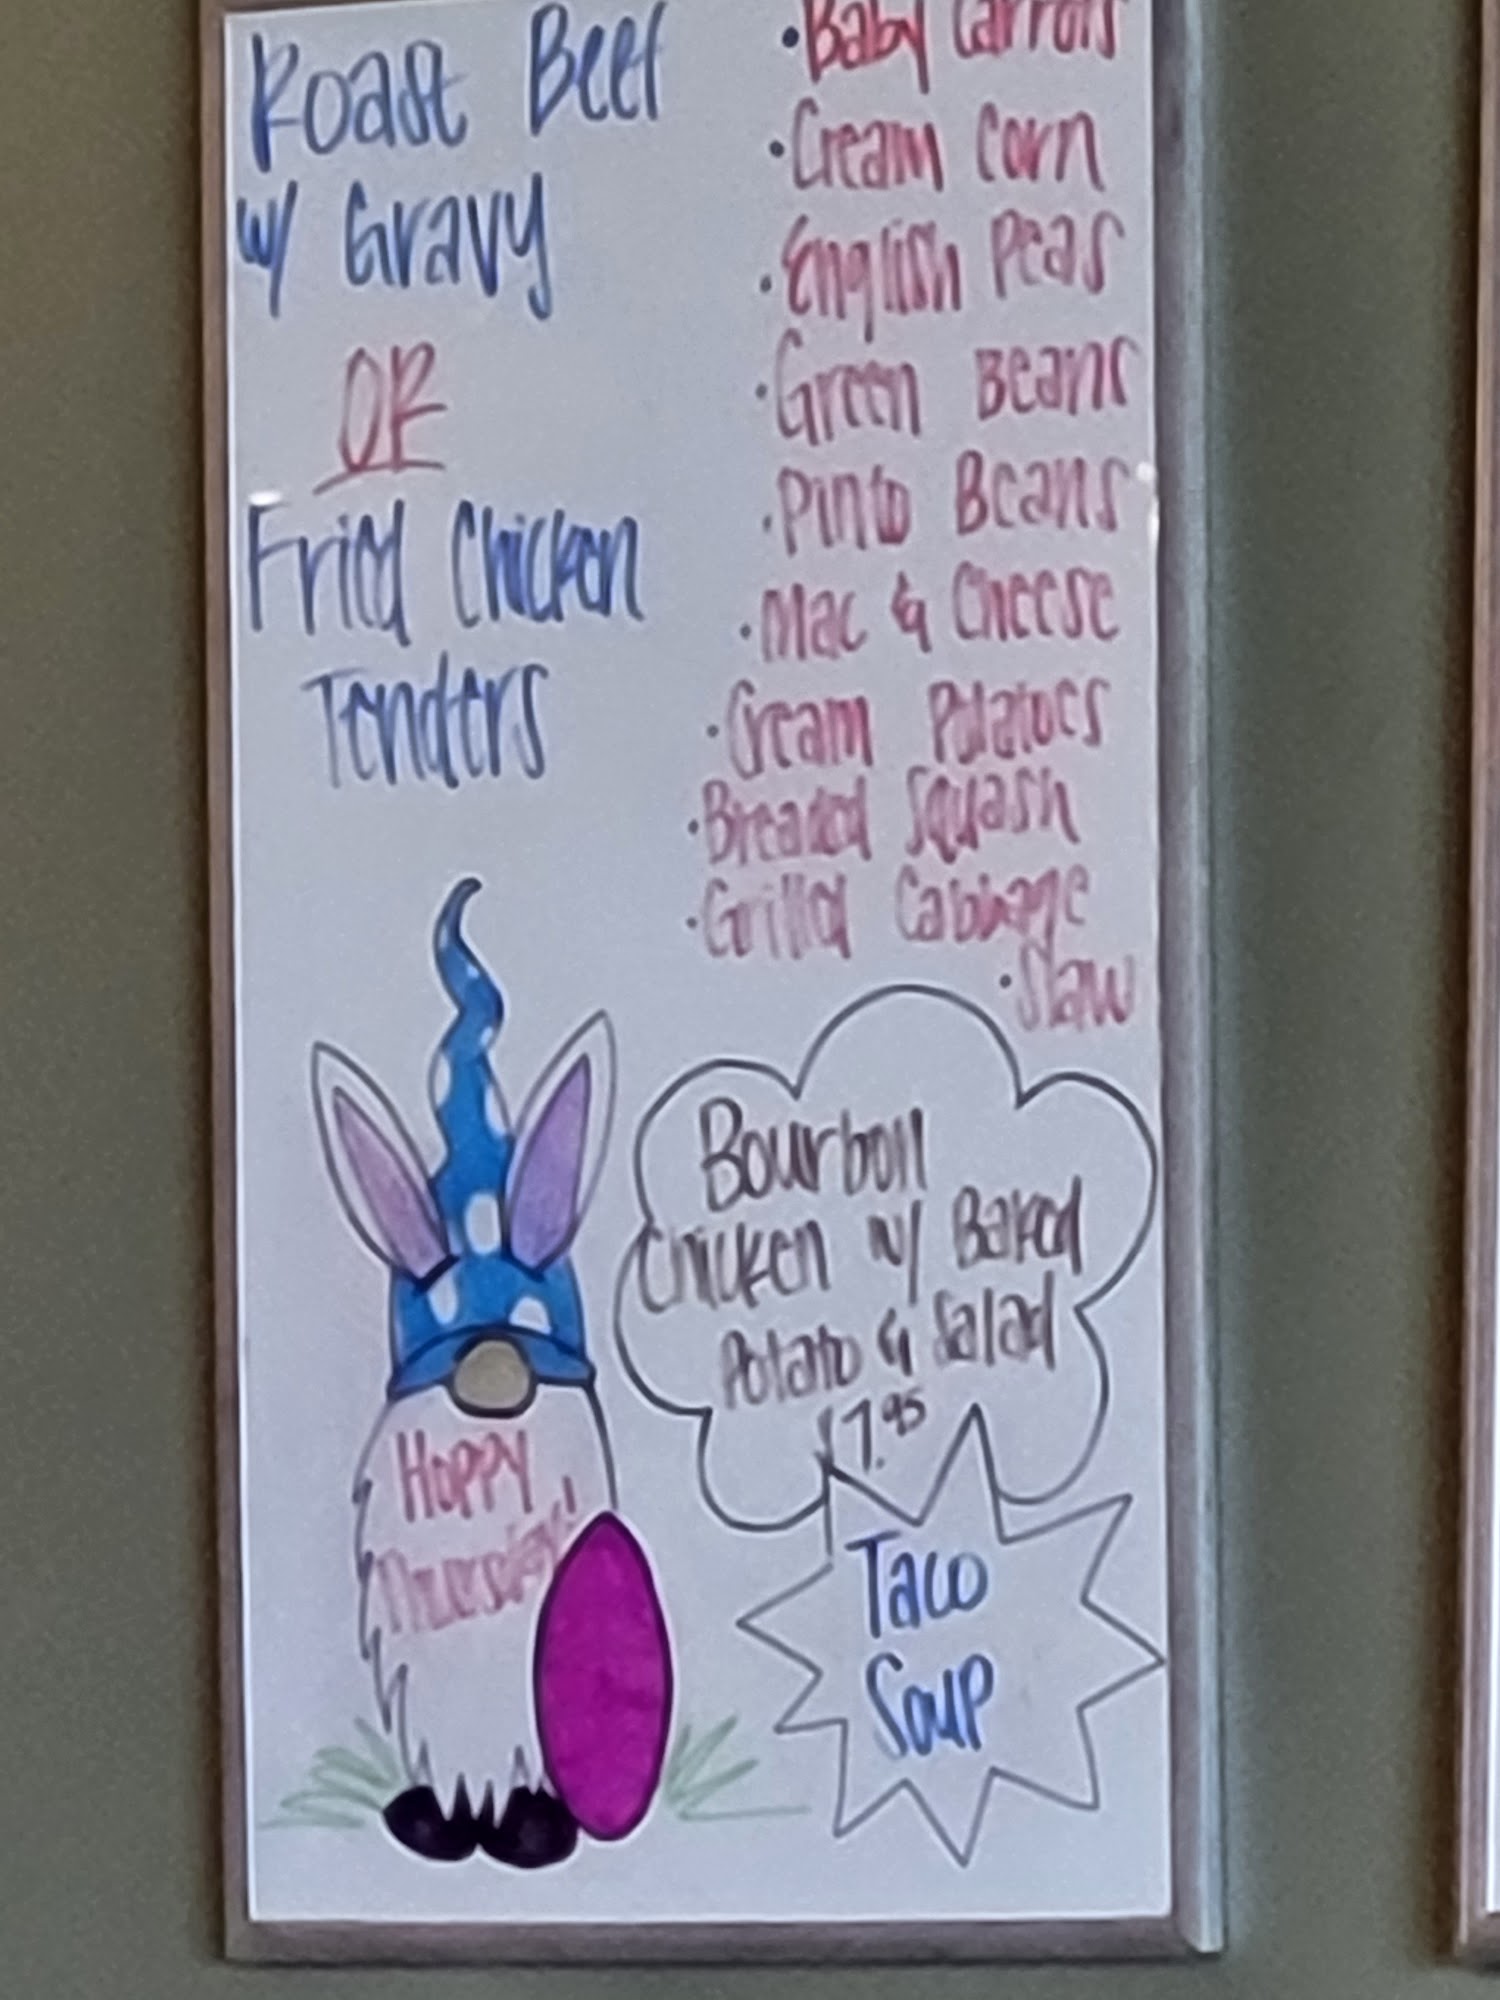 Roast Beef
w/ Gravy
OR
Fried Chicken
Tenders
• Baby Carrots
• Cream Corn
• English Peas
• Green Beans
• Pinto Beans
• Mac & Cheese
• Cream Potatoes
• Breaded Squash
• Grilled Cabbage
• Slaw
Bourbon
Chicken w/ Baked
Potato & Salad
$7.95
Taco
Soup
Hoppy
Thursday!